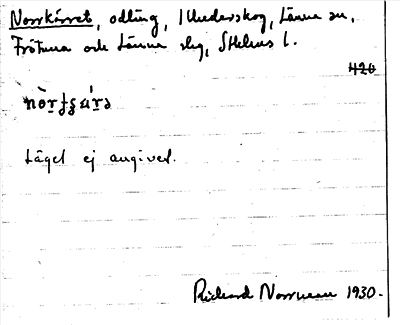 Norrkärret, odling, i Klunderskog, Länna sn,
Frötuna och Länna skg, Sthlms l.
420
Läget ej angivet.
Rickard Norrman 1930.